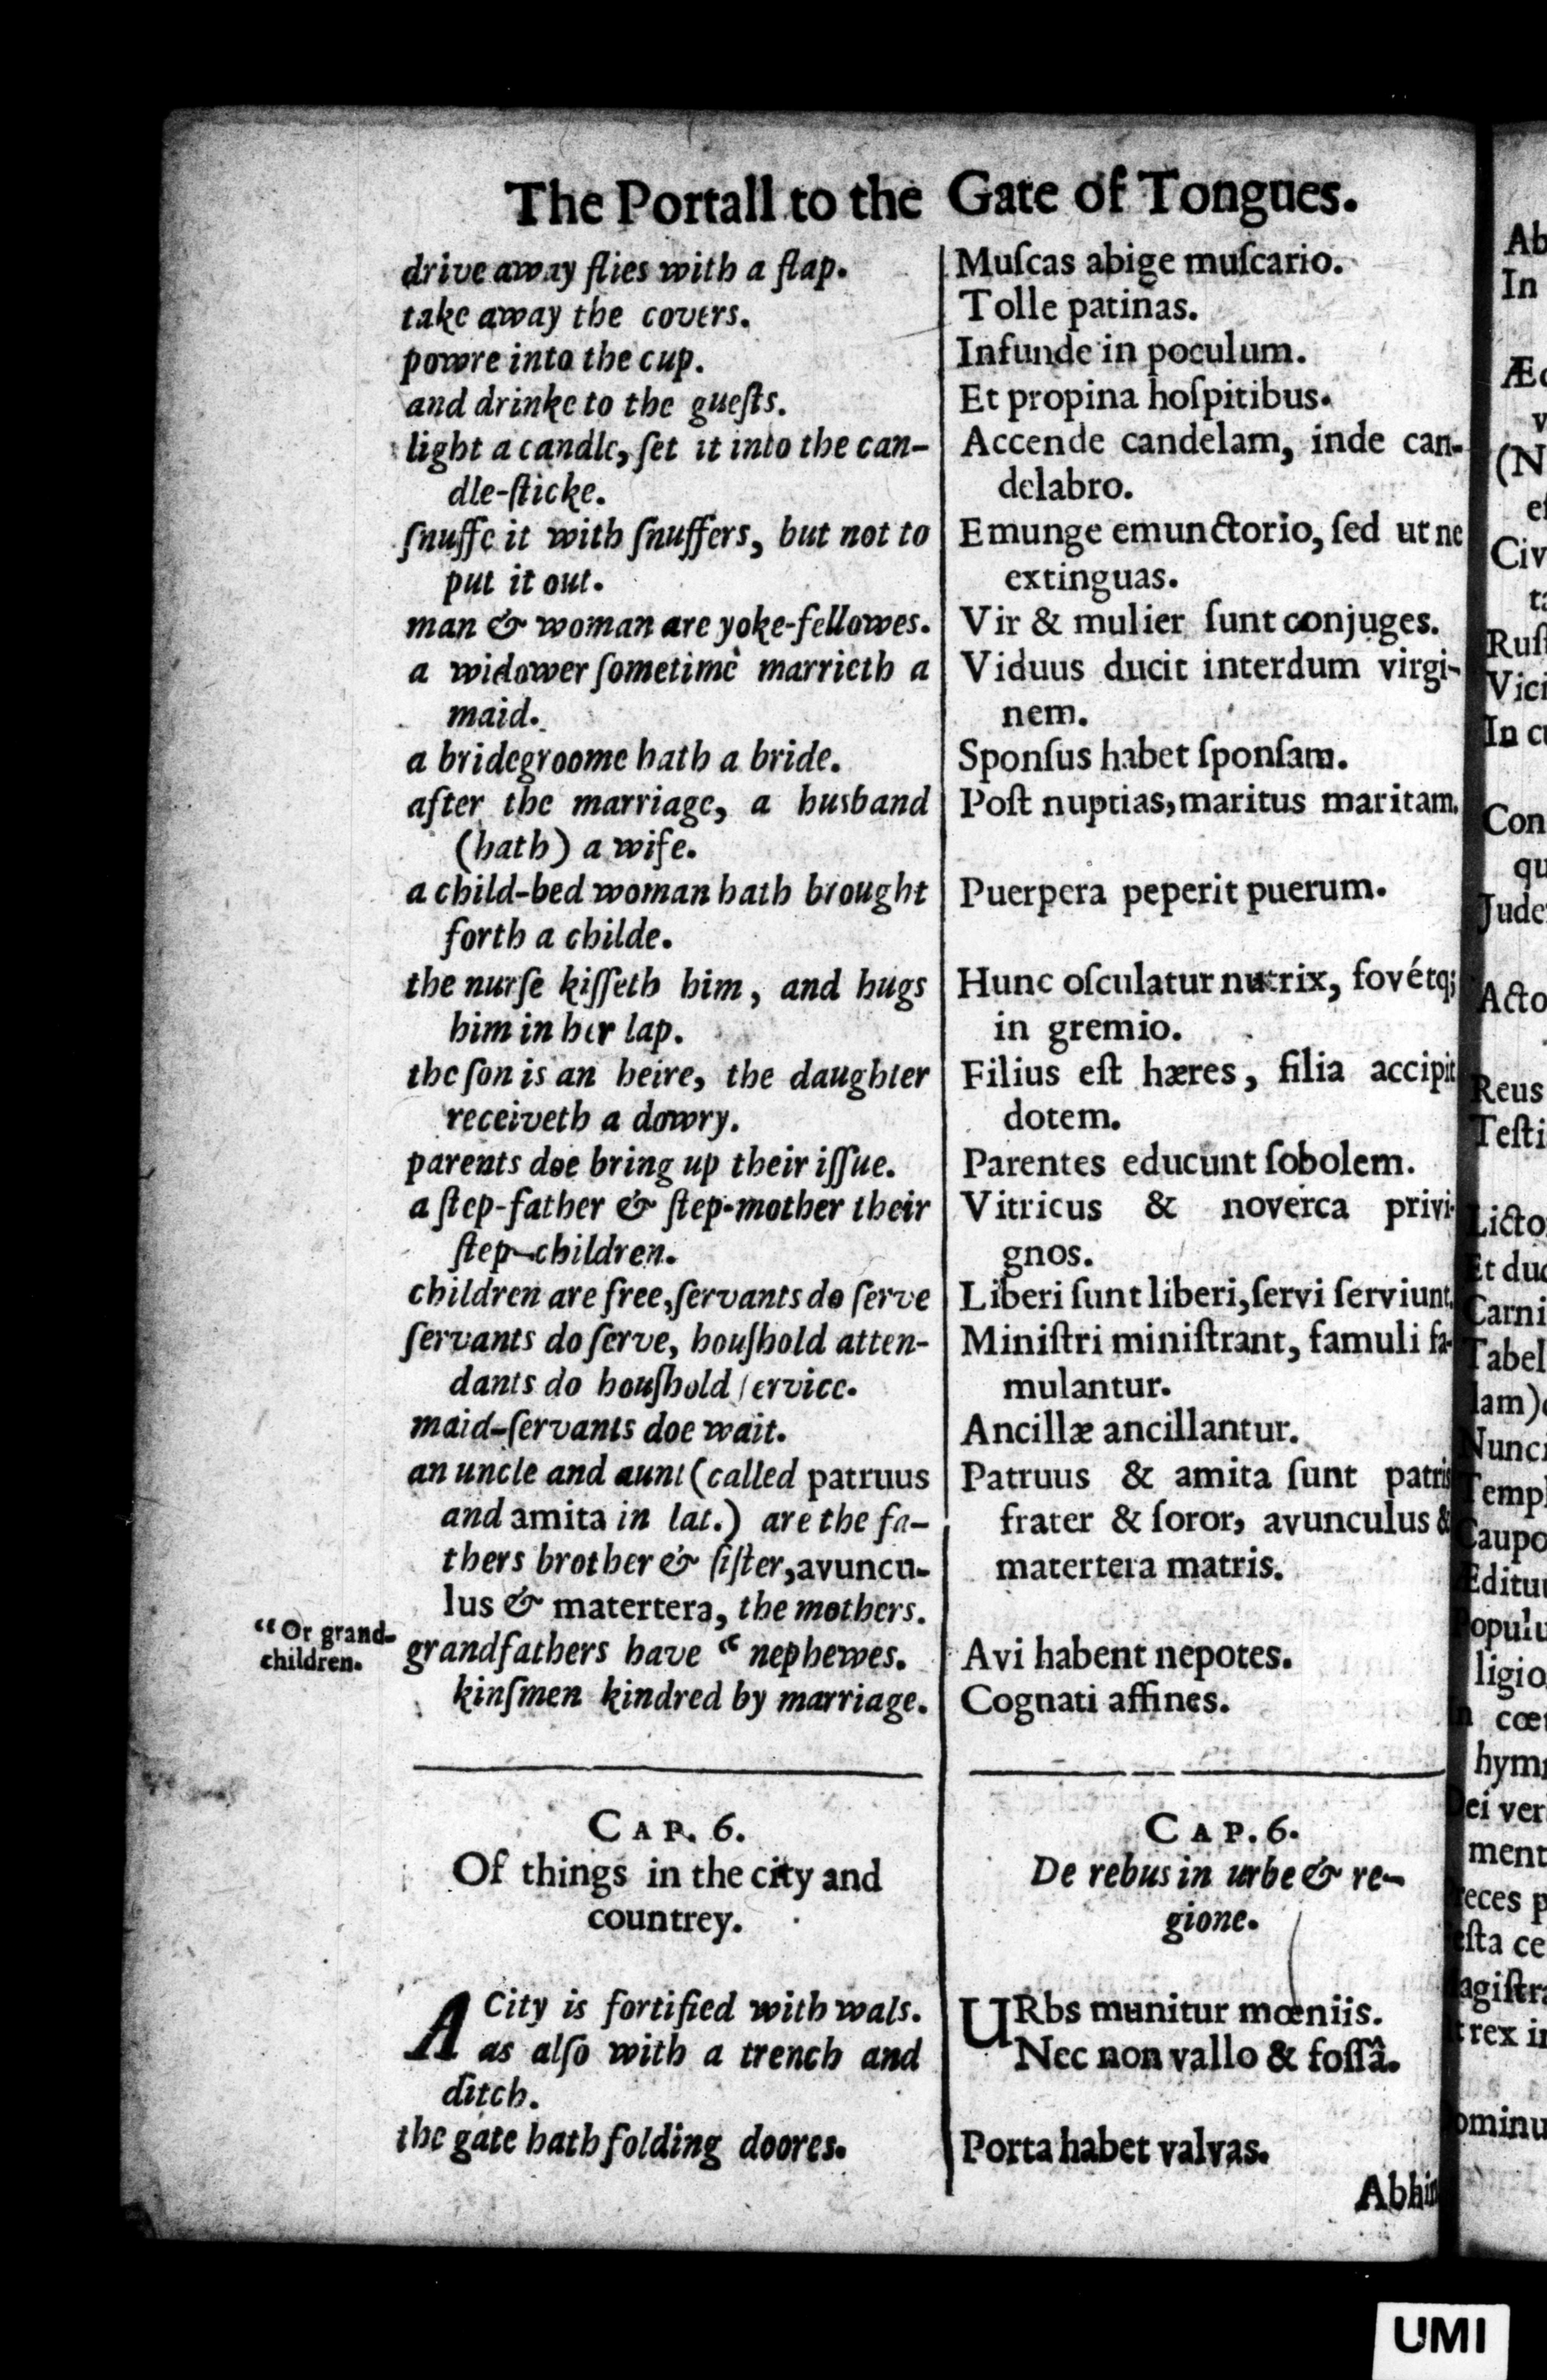 The Portall to the Gate of Tongues.
drive away flies with a flap.
take away the covers.
powre into the cup.
and drinke to the gueſts.
light a candle, ſet it into the can-
dle-ſticke.
ſnuffe it with ſnuffers, but not to
put it out.
man & woman are yoke-fellowes.
a widower ſometime marrieth a
maid.
a bridegroome hath a bride.
after the marriage, a husband
(hath) a wife.
a child-bed woman hath brought
forth a childe.
the nurſe kiſſeth him, and hugs
him in her lap.
the ſon is an heire, the daughter
receiveth a dowry.
parents doe bring up their iſſue.
a ſtep-father & ſtep-mother their
ſtep-children.
children are free, ſervants do ſerve
ſervants do ſerve, houſhold atten-
dants do houſhold ſervice.
maid-ſervants doe wait.
an uncle and aunt (called patruus
and amita in lat.) are the fa-
thers brother & ſiſter, avuncu-
lus & matertera, the mothers.
“Or grand-
children.
grandfathers have “ nephewes.
kinſmen kindred by marriage.
CAP. 6.
Of things in the city and
countrey.
A City is fortified with wals.
as alſo with a trench and
ditch.
the gate hath folding doores.
Muſcas abige muſcario.
Tolle patinas.
Infunde in poculum.
Et propina hoſpitibus.
Accende candelam, inde can-
delabro.
Emunge emunctorio, ſed ut ne
extinguas.
Vir & mulier ſunt conjuges.
Viduus ducit interdum virgi-
nem.
Sponſus habet ſponſam.
Poſt nuptias, maritus maritam.
Puerpera peperit puerum.
Hunc oſculatur nutrix, fovétq;
in gremio.
Filius eſt hæres, filia accipit
dotem.
Parentes educunt ſobolem.
Vitricus & noverca privi-
gnos.
Liberi ſunt liberi, ſervi ſerviunt.
Miniſtri miniſtrant, famuli fa-
mulantur.
Ancillæ ancillantur.
Patruus & amita ſunt patris
frater & ſoror, avunculus &
matertera matris.
Avi habent nepotes.
Cognati affines.
CAP. 6.
De rebus in urbe & re-
gione.
URbs munitur mœniis.
Nec non vallo & foſſâ.
Porta habet valvas.
UMI